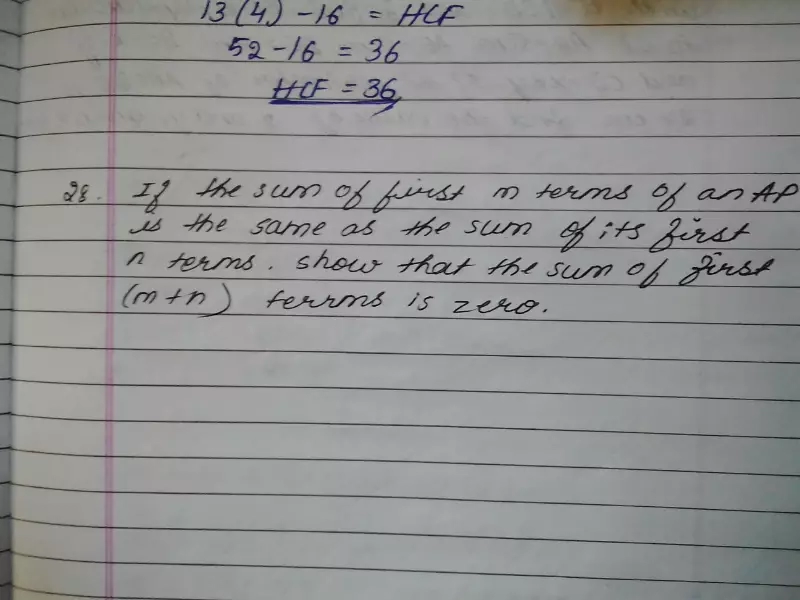 13 (4) - 16 = HCF
52 - 16 = 36
HCF = 36
28. If the sum of first m terms of an AP
is the same as the sum of its first
n terms. show that the sum of first
(m+n) terms is zero.